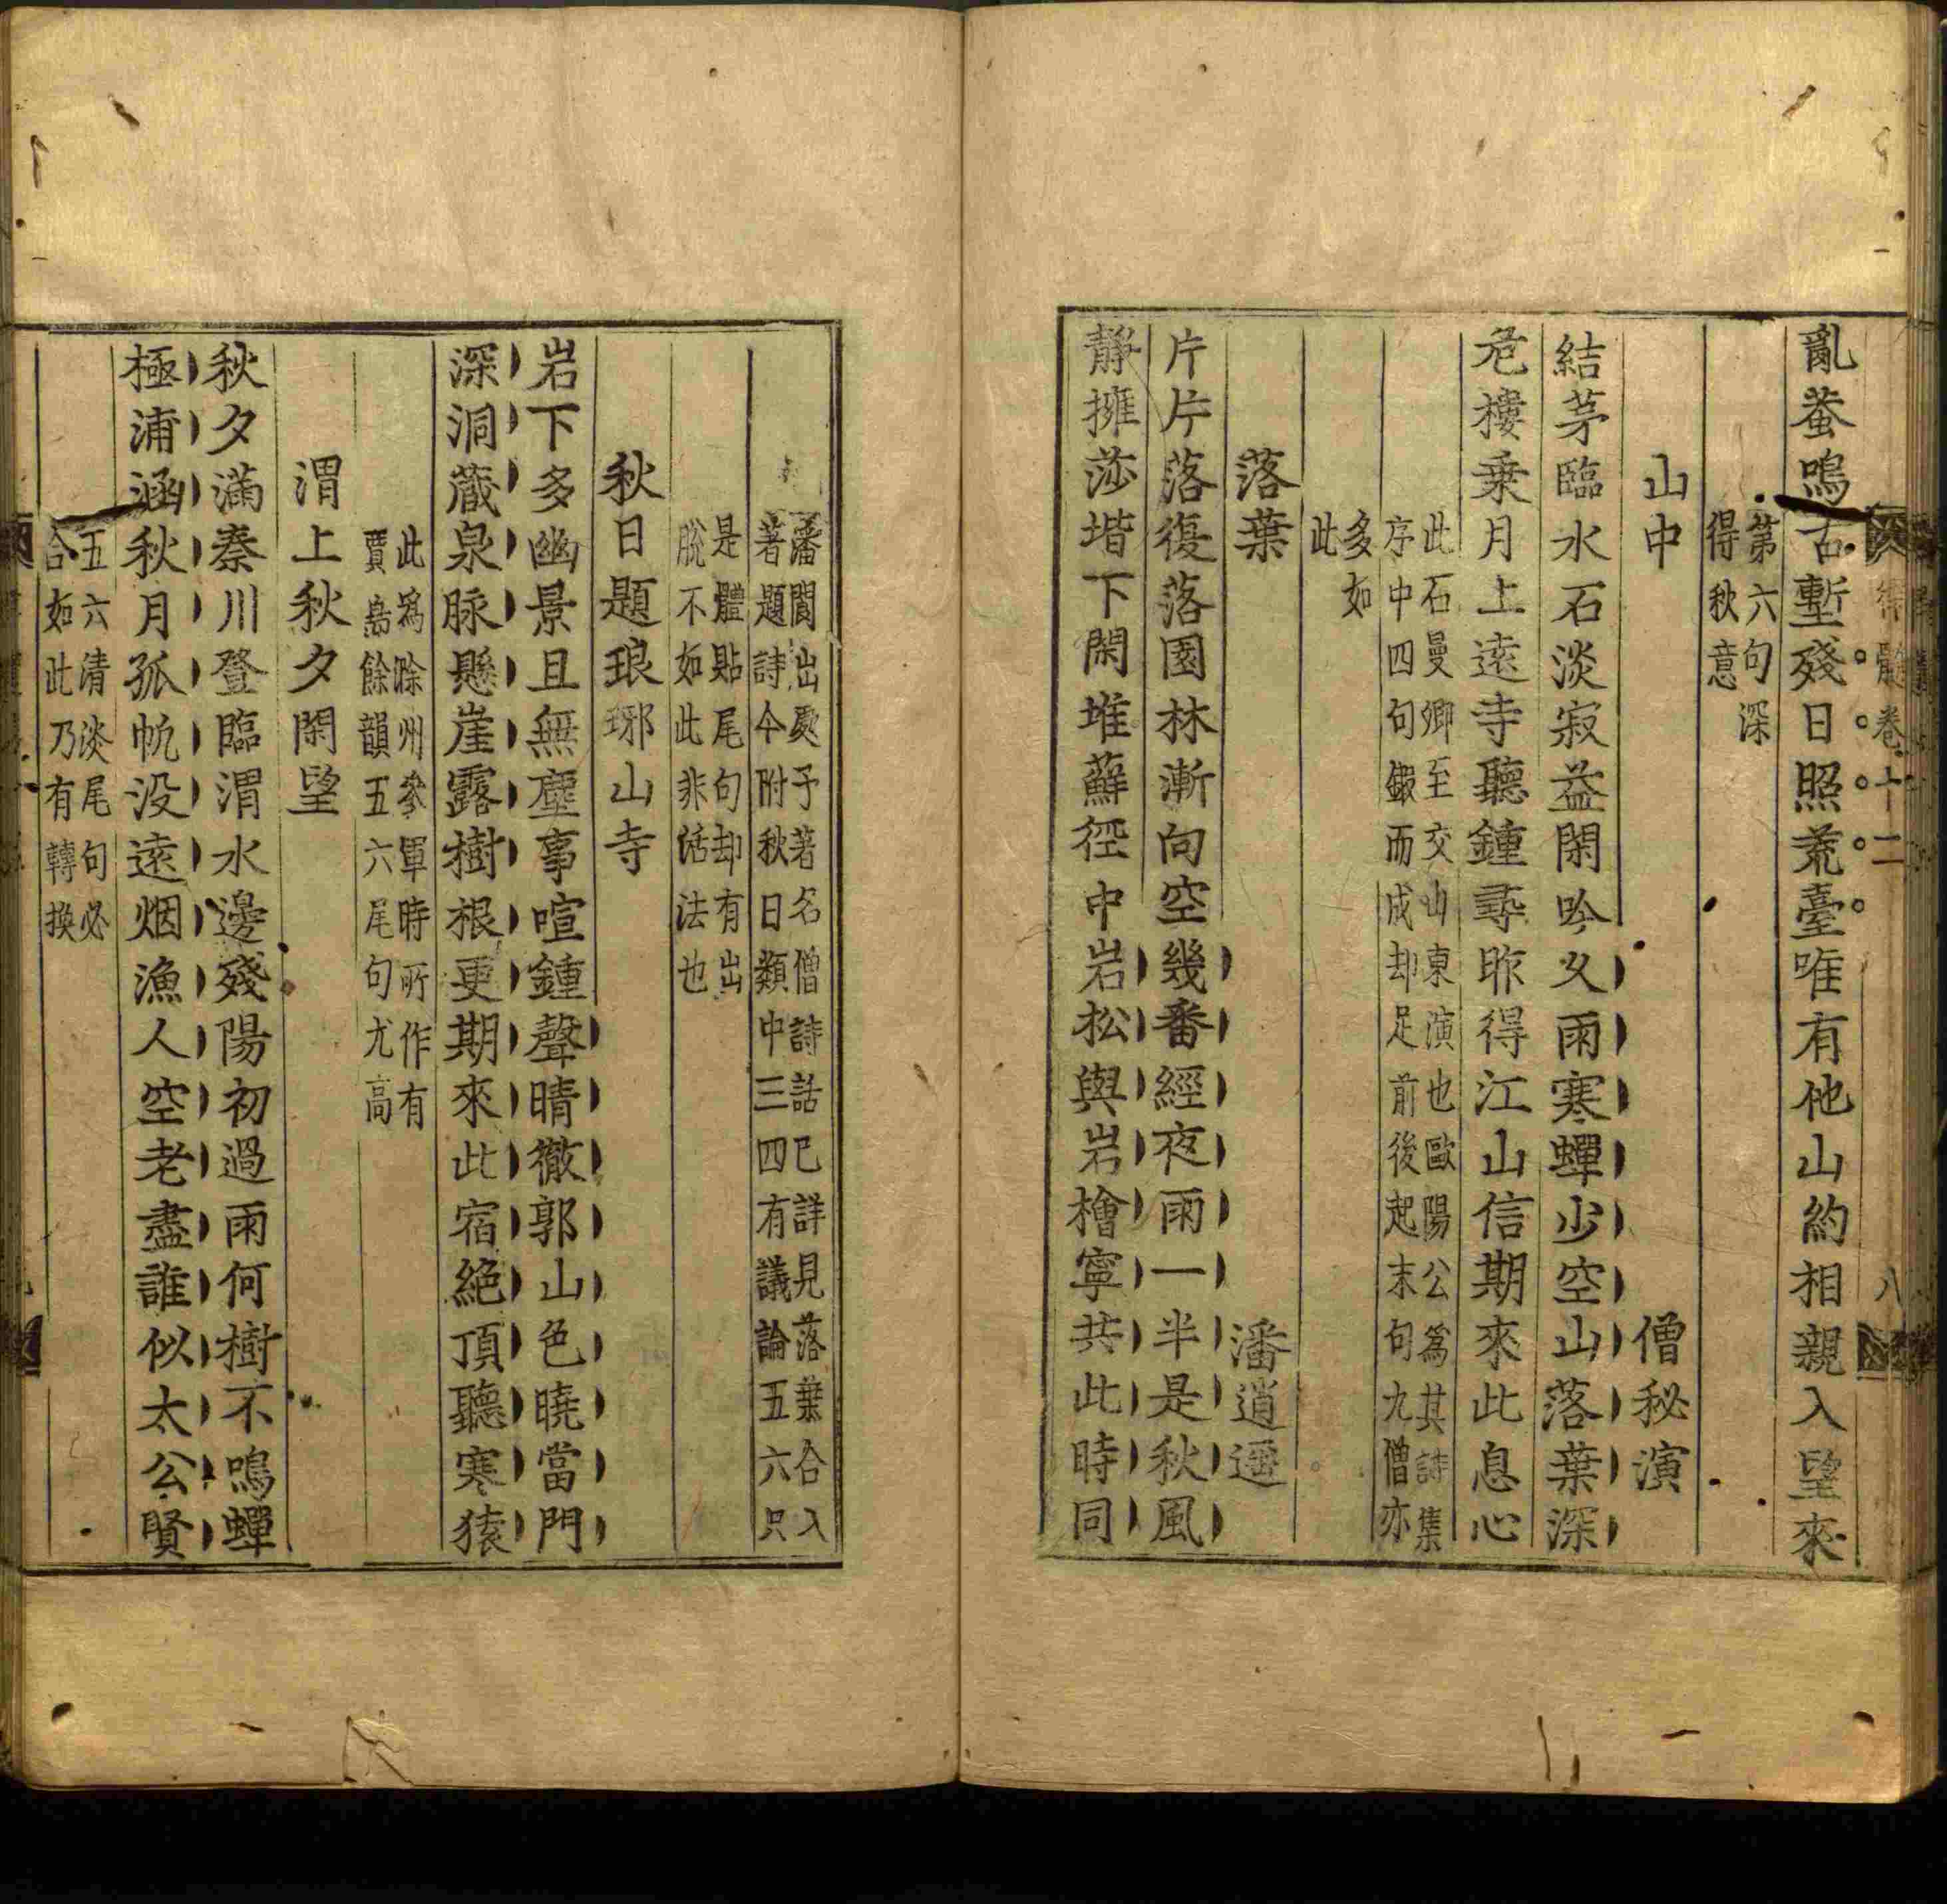 亂蛩鳴古塹殘日照荒臺唯有他山約相親入望來
第六句深
得秋意
山中 僧秘演
結茅臨水石淡寂益閑吟久雨寒蟬少空山落葉深
危樓乗月上遠寺聽鍾尋昨得江山信期來此息心
此石曼卿至交山東演也歐陽公爲其詩集
序中四句鍛而成却足前後起末句九僧亦
多如
此
落葉 潘逍遥
片片落復落園林漸向空幾番經夜雨一半是秋風
靜擁莎堦下閑堆蘚徑中岩松與岩檜寧共此時同
潘閬出處予著名僧詩話已詳見落葉合入
著題詩今附秋日類中三四有議論五六只
是體貼尾句却有出
脫不如此非活法也
秋日題琅琊山寺
岩下多幽景且無塵事喧鍾聲晴徹郭山色曉當門
深洞藏泉脉懸崖露樹根更期來此宿絶頂聽寒猿
此爲滁州參軍時所作有
賈島餘韻五六尾句尤高
渭上秋夕閑望
秋夕滿秦川登臨渭水邊殘陽初過雨何樹不鳴蟬
極浦涵秋月孤帆没遠烟漁人空老盡誰似太公賢
五六清淡尾句必
合如此乃有轉換
髓卷十二 八